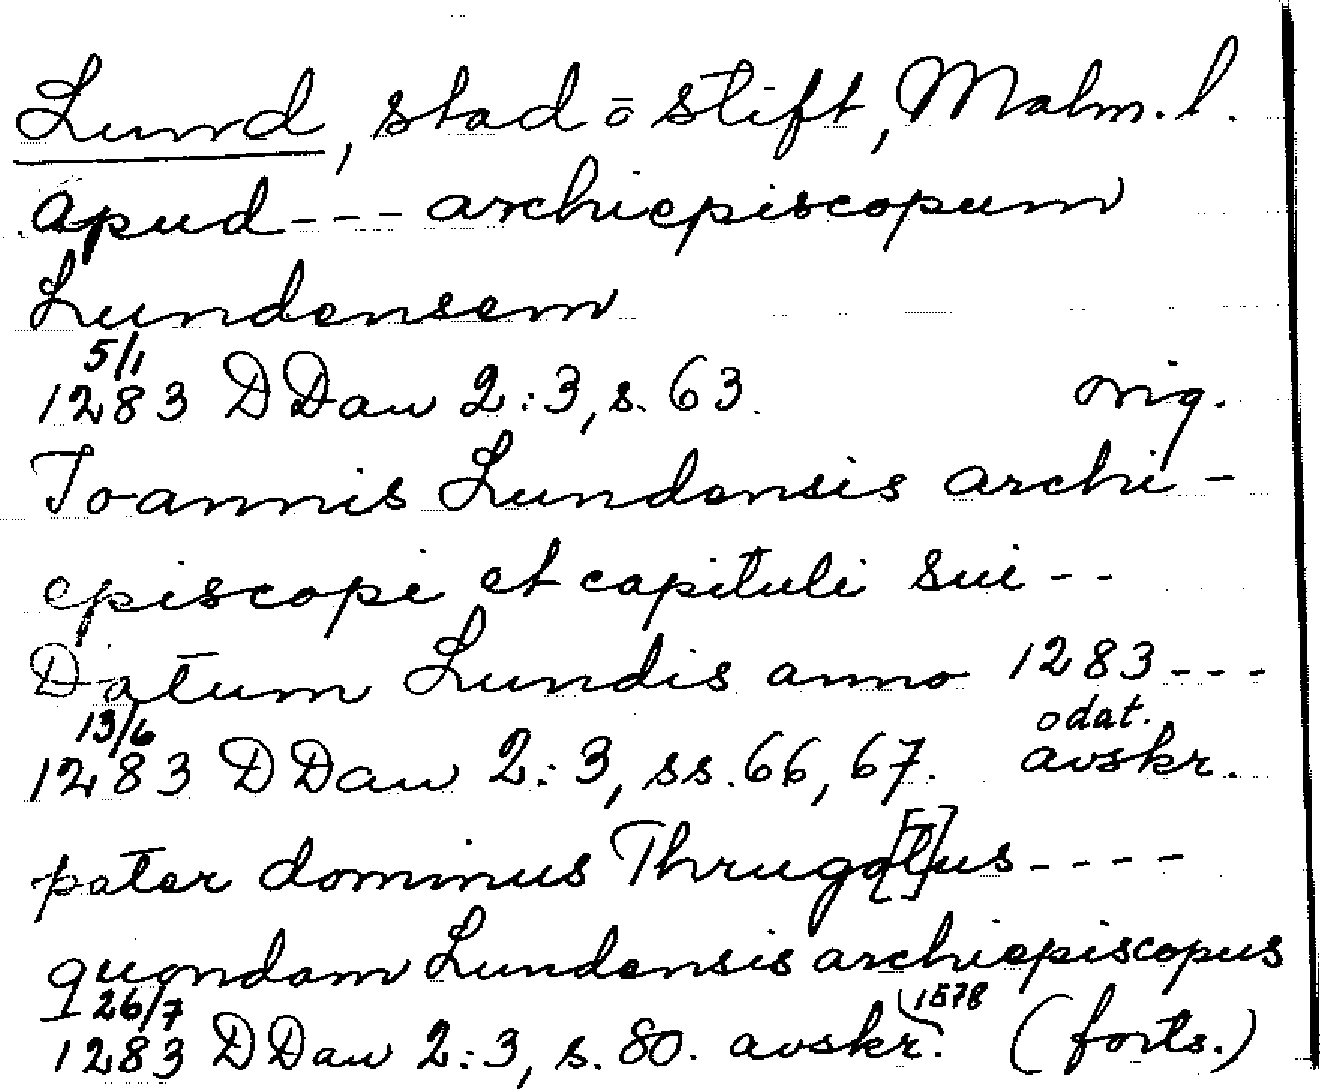 Lund, stad ō stift, Malm. l.
Apud --- archiepiscopum
Lundensem
5/1
1283 DDan 2:3, s. 63. orig.
Ioannis Lundensis archi-
episcopi et capituli sui --
Datum Lundis anno 1283 ---
13/6 odat.
1283 DDan 2:3, ss. 66, 67. avskr.
pater dominus Thrugo[t]us ----
quondam Lundensis archiepiscopus
26/7 1578
1283 DDan 2:3, s. 80. avskr. (forts.)